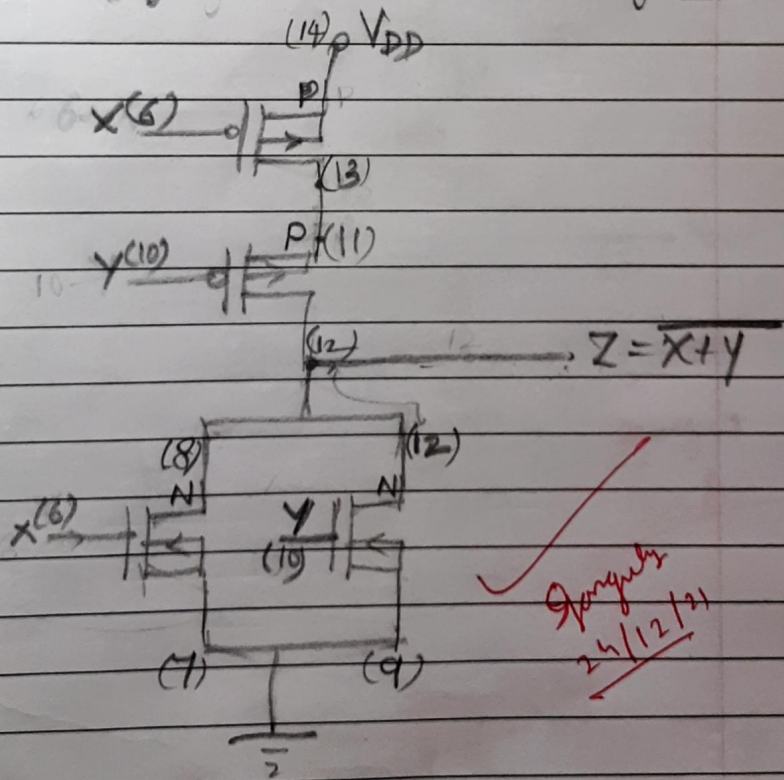 (14) VDD
X(6) P
(13)
Y(10) P (11)
(12) Z = \overline{X+Y}
(8) (12)
N N
X(6) Y
(10)
(7) (9)
24/12/21